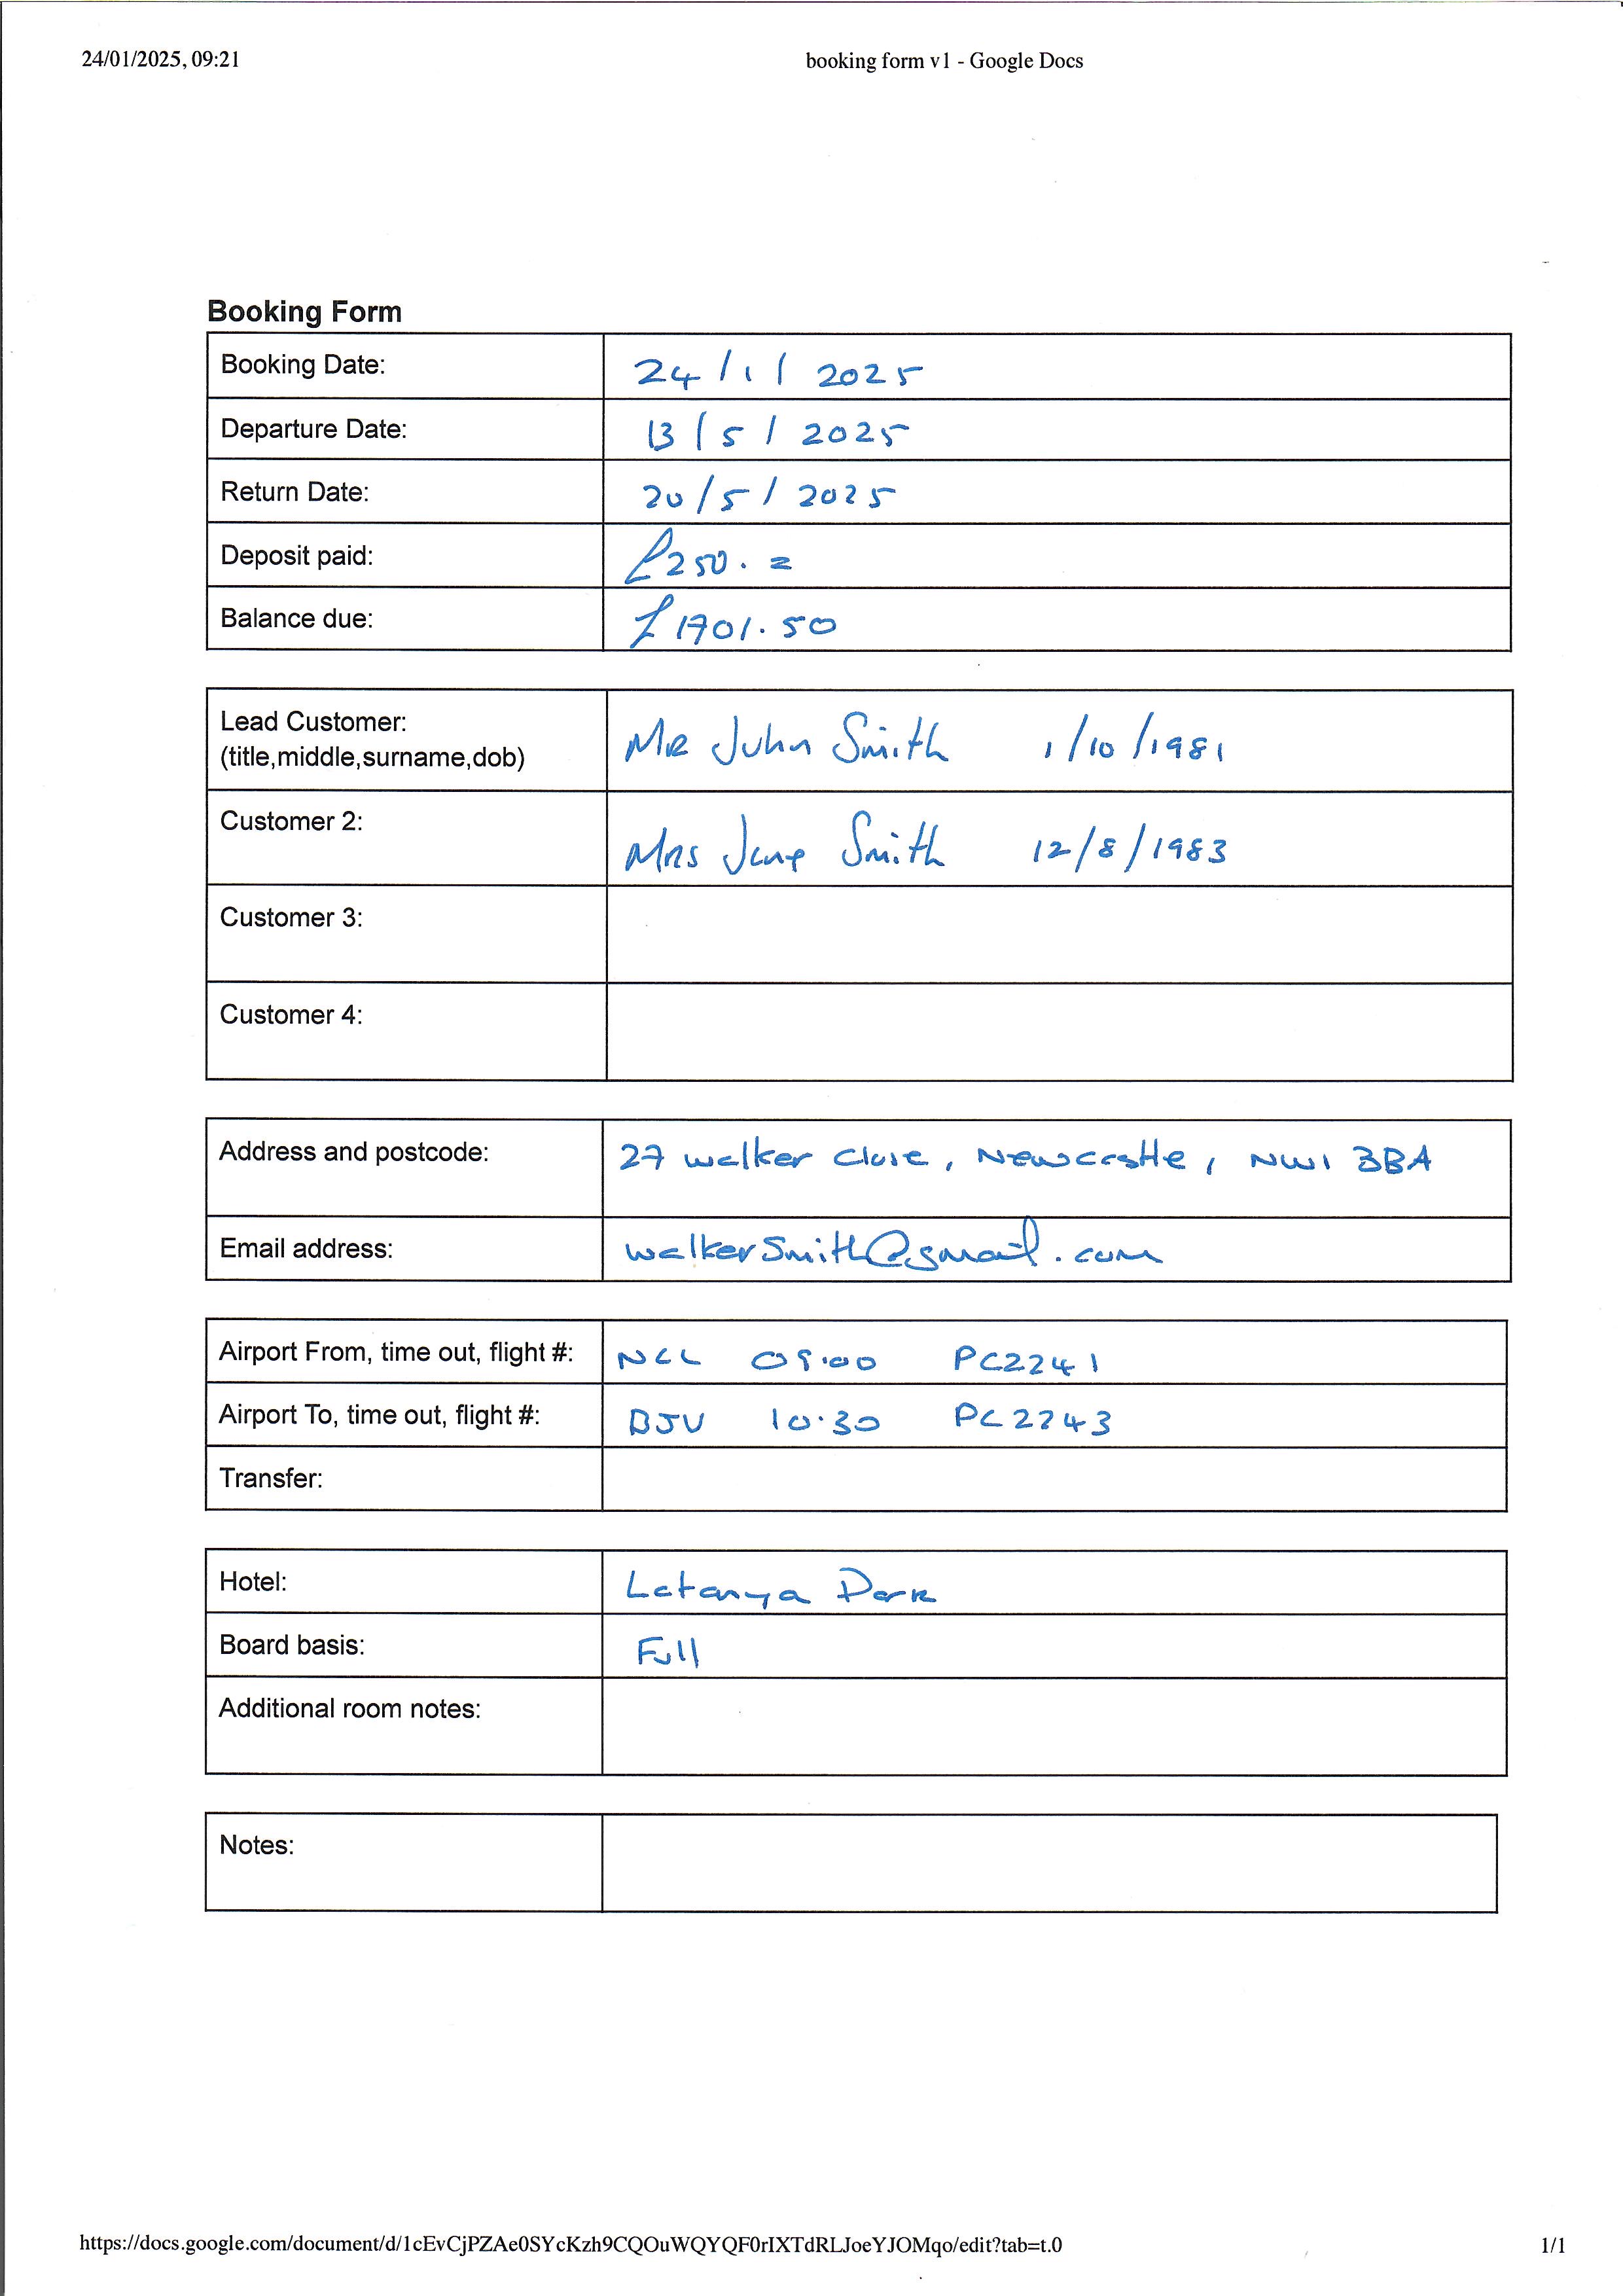 24/01/2025, 09:21 booking form v1 - Google Docs
Booking Form
Booking Date: 24/1/2025
Departure Date: 13/5/2025
Return Date: 20/5/2025
Deposit paid: £250.=
Balance due: £1701.50
Lead Customer: Mr John Smith 1/10/1981
(title,middle,surname,dob)
Customer 2: Mrs Jane Smith 12/8/1983
Customer 3:
Customer 4:
Address and postcode: 27 walker close, Newcastle, NW1 3BA
Email address: walkersmith@gmail.com
Airport From, time out, flight #: NCL 09:00 PC2241
Airport To, time out, flight #: BJV 10.30 PC2243
Transfer:
Hotel: Letanya Park
Board basis: Full
Additional room notes:
Notes:
https://docs.google.com/document/d/1cEvCjPZAe0SYcKzh9CQOuWQYQF0rIXTdRLJoeYJOMqo/edit?tab=t.0 1/1